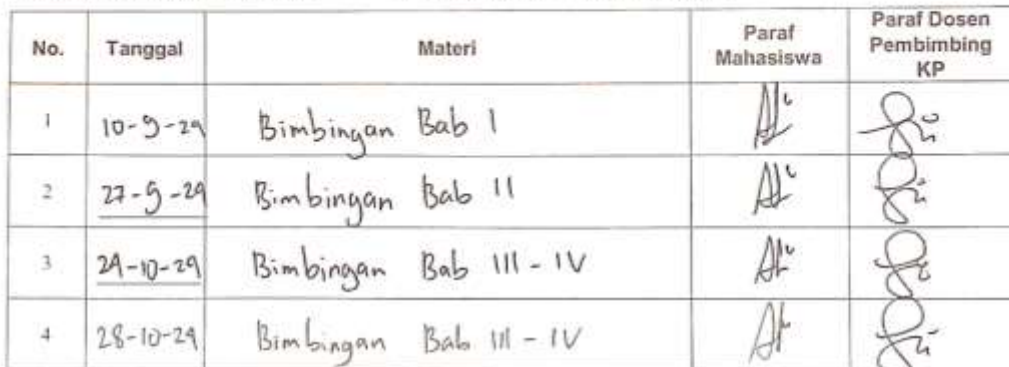 No. Tanggal Materi Paraf Mahasiswa Paraf Dosen Pembimbing KP
1 10-9-24 Bimbingan Bab I
2 27-9-24 Bimbingan Bab II
3 24-10-24 Bimbingan Bab III - IV
4 28-10-24 Bimbingan Bab III - IV